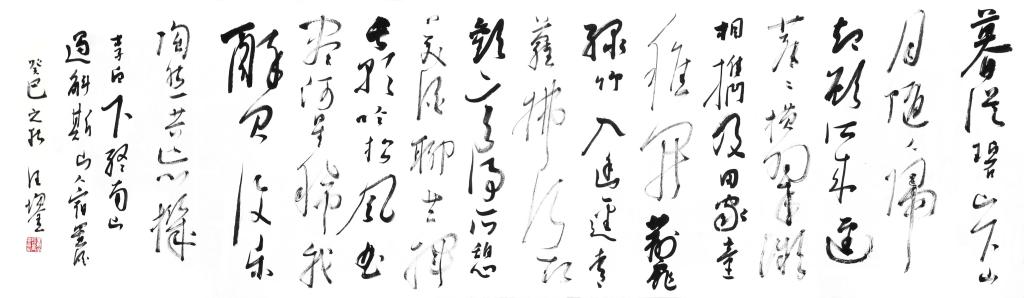 暮從碧山下山
月随人歸
却顧所來逕
蒼〻横翠微
相攜及田家童
稚開荆扉
緑竹入幽逕青
蘿拂行衣
歡言得所憩
美酒聊共揮
長歌吟松風曲
盡河星稀我
醉君復樂
陶然共忘機
李白下終南山
過斛斯山人宿置酒
癸巳之秋 汪